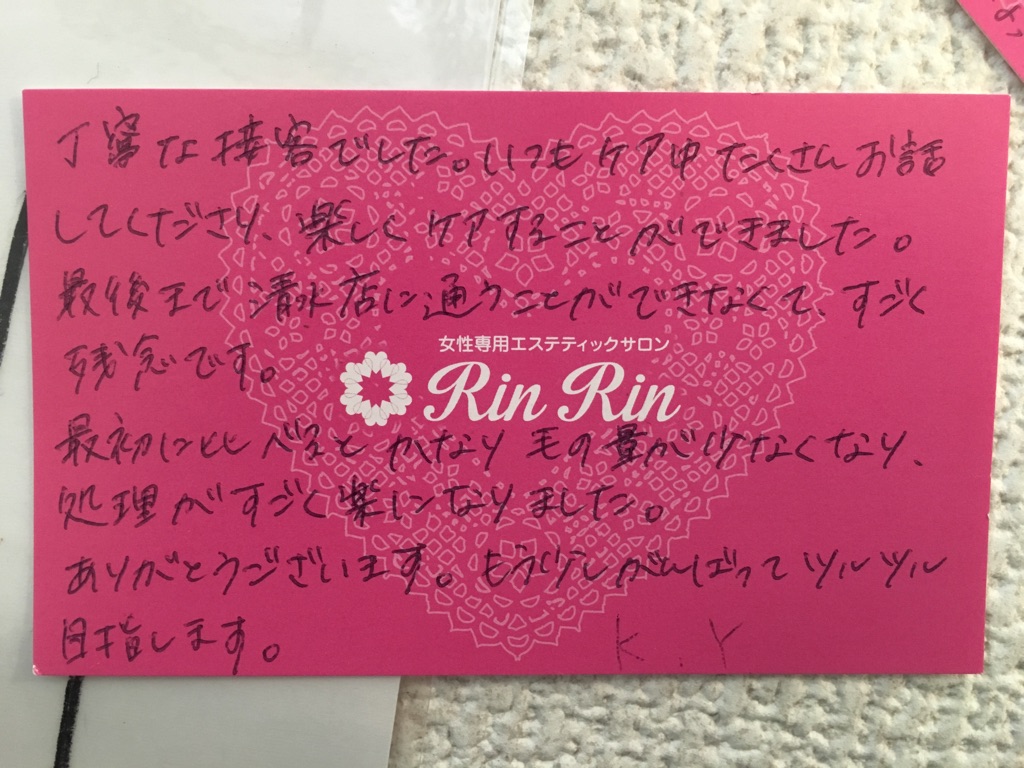 丁寧な接客でした。いつもケア中たくさんお話
してくださり、楽しくケアすることができました。
最後まで清水店に通うことができなくて、すごく
残念です。
女性専用エステティックサロン
Rin Rin
最初にくらべるとかなり毛の量が少なくなり、
処理がすごく楽になりました。
ありがとうございます。もう少しがんばってツルツル
目指します。
K.Y